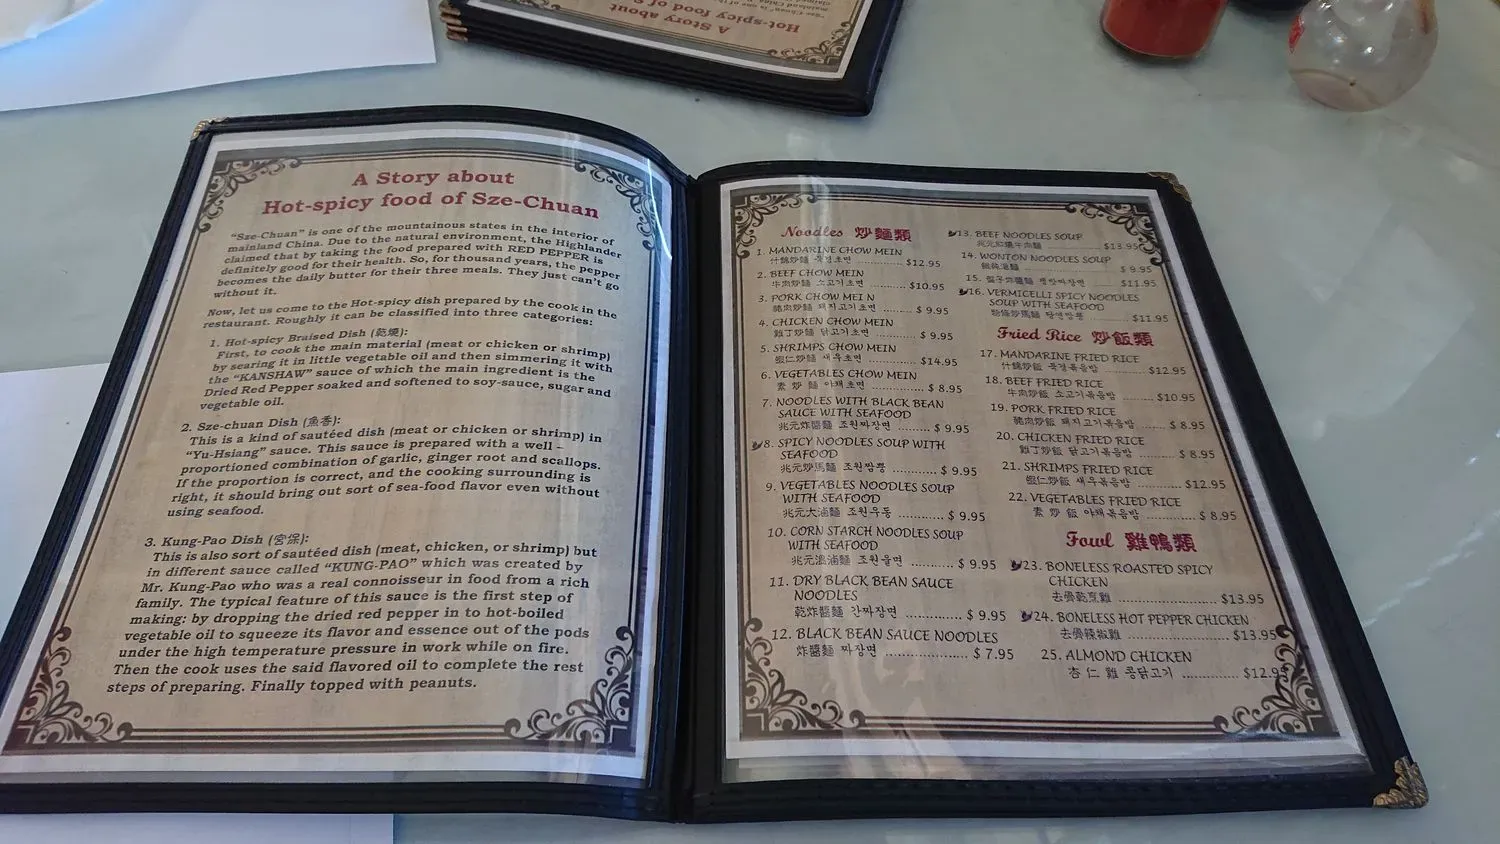 A Story about
Hot-spicy food of Sze-Chuan
"Sze-Chuan" is one of the mountainous states in the interior of
mainland China. Due to the natural environment, the Highlander
claimed that by taking the food prepared with RED PEPPER is
definitely good for their health. So, for thousand years, the pepper
becomes the daily butter for their three meals. They just can't go
without it.
Now, let us come to the Hot-spicy dish prepared by the cook in the
restaurant. Roughly it can be classified into three categories:
1. Hot-spicy Braised Dish (乾燒):
First, to cook the main material (meat or chicken or shrimp)
by searing it in little vegetable oil and then simmering it with
the "KANSHAW" sauce of which the main ingredient is the
Dried Red Pepper soaked and softened to soy-sauce, sugar and
vegetable oil.
2. Sze-chuan Dish (魚香):
This is a kind of sautéed dish (meat or chicken or shrimp) in
"Yu-Hsiang" sauce. This sauce is prepared with a well –
proportioned combination of garlic, ginger root and scallops.
If the proportion is correct, and the cooking surrounding is
right, it should bring out sort of sea-food flavor even without
using seafood.
3. Kung-Pao Dish (宮保):
This is also sort of sautéed dish (meat, chicken, or shrimp) but
in different sauce called "KUNG-PAO" which was created by
Mr. Kung-Pao who was a real connoisseur in food from a rich
family. The typical feature of this sauce is the first step of
making: by dropping the dried red pepper in to hot-boiled
vegetable oil to squeeze its flavor and essence out of the pods
under the high temperature pressure in work while on fire.
Then the cook uses the said flavored oil to complete the rest
steps of preparing. Finally topped with peanuts.
Noodles 炒麵類
1. MANDARINE CHOW MEIN
什錦炒麵 북경초면 $12.95
2. BEEF CHOW MEIN
牛肉炒麵 소고기초면 $10.95
3. PORK CHOW MEI N
豬肉炒麵 돼지고기초면 $ 9.95
4. CHICKEN CHOW MEIN
雞丁炒麵 닭고기초면 $ 9.95
5. SHRIMPS CHOW MEIN
蝦仁炒麵 새우초면 $14.95
6. VEGETABLES CHOW MEIN
素 炒 麵 야채초면 $ 8.95
7. NOODLES WITH BLACK BEAN
SAUCE WITH SEAFOOD
兆元炸醬麵 조원짜장면 $ 9.95
8. SPICY NOODLES SOUP WITH
SEAFOOD
兆元炒馬麵 조원짬뽕 $ 9.95
9. VEGETABLES NOODLES SOUP
WITH SEAFOOD
兆元大滷麵 조원우동 $ 9.95
10. CORN STARCH NOODLES SOUP
WITH SEAFOOD
兆元溫滷麵 조원울면 $ 9.95
11. DRY BLACK BEAN SAUCE
NOODLES
乾炸醬麵 간짜장면 $ 9.95
12. BLACK BEAN SAUCE NOODLES
炸醬麵 짜장면 $ 7.95
13. BEEF NOODLES SOUP
$13.95
14. WONTON NOODLES SOUP
$ 9.95
15. $11.95
16. VERMICELLI SPICY NOODLES
SOUP WITH SEAFOOD
$11.95
Fried Rice 炒飯類
17. MANDARINE FRIED RICE
什錦炒飯 북경볶음밥 $12.95
18. BEEF FRIED RICE
牛肉炒飯 소고기볶음밥 $10.95
19. PORK FRIED RICE
豬肉炒飯 돼지고기볶음밥 $ 8.95
20. CHICKEN FRIED RICE
雞丁炒飯 닭고기볶음밥 $ 8.95
21. SHRIMPS FRIED RICE
蝦仁炒飯 새우볶음밥 $12.95
22. VEGETABLES FRIED RICE
素 炒 飯 야채볶음밥 $ 8.95
Fowl 雞鴨類
23. BONELESS ROASTED SPICY
CHICKEN
去骨乾烹雞 $13.95
24. BONELESS HOT PEPPER CHICKEN
去骨辣椒雞 $13.95
25. ALMOND CHICKEN
杏 仁 雞 콩닭고기 $12.95
A Story about
Hot-spicy food of S